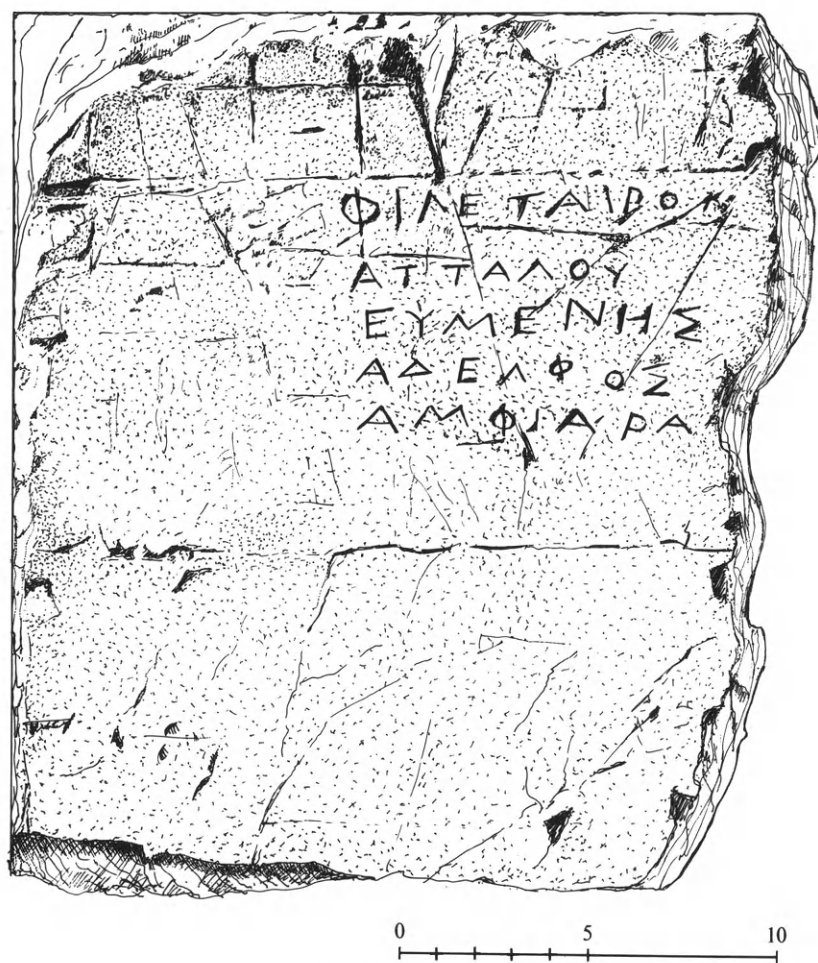 ΦΙΛΕΤΑΙΡΟΣ
ΑΤΤΑΛΟΥ
ΕΥΜΕΝΗΣ
ΑΔΕΛΦΟΣ
ΑΜΦΙΑΡΑ
0 5 10